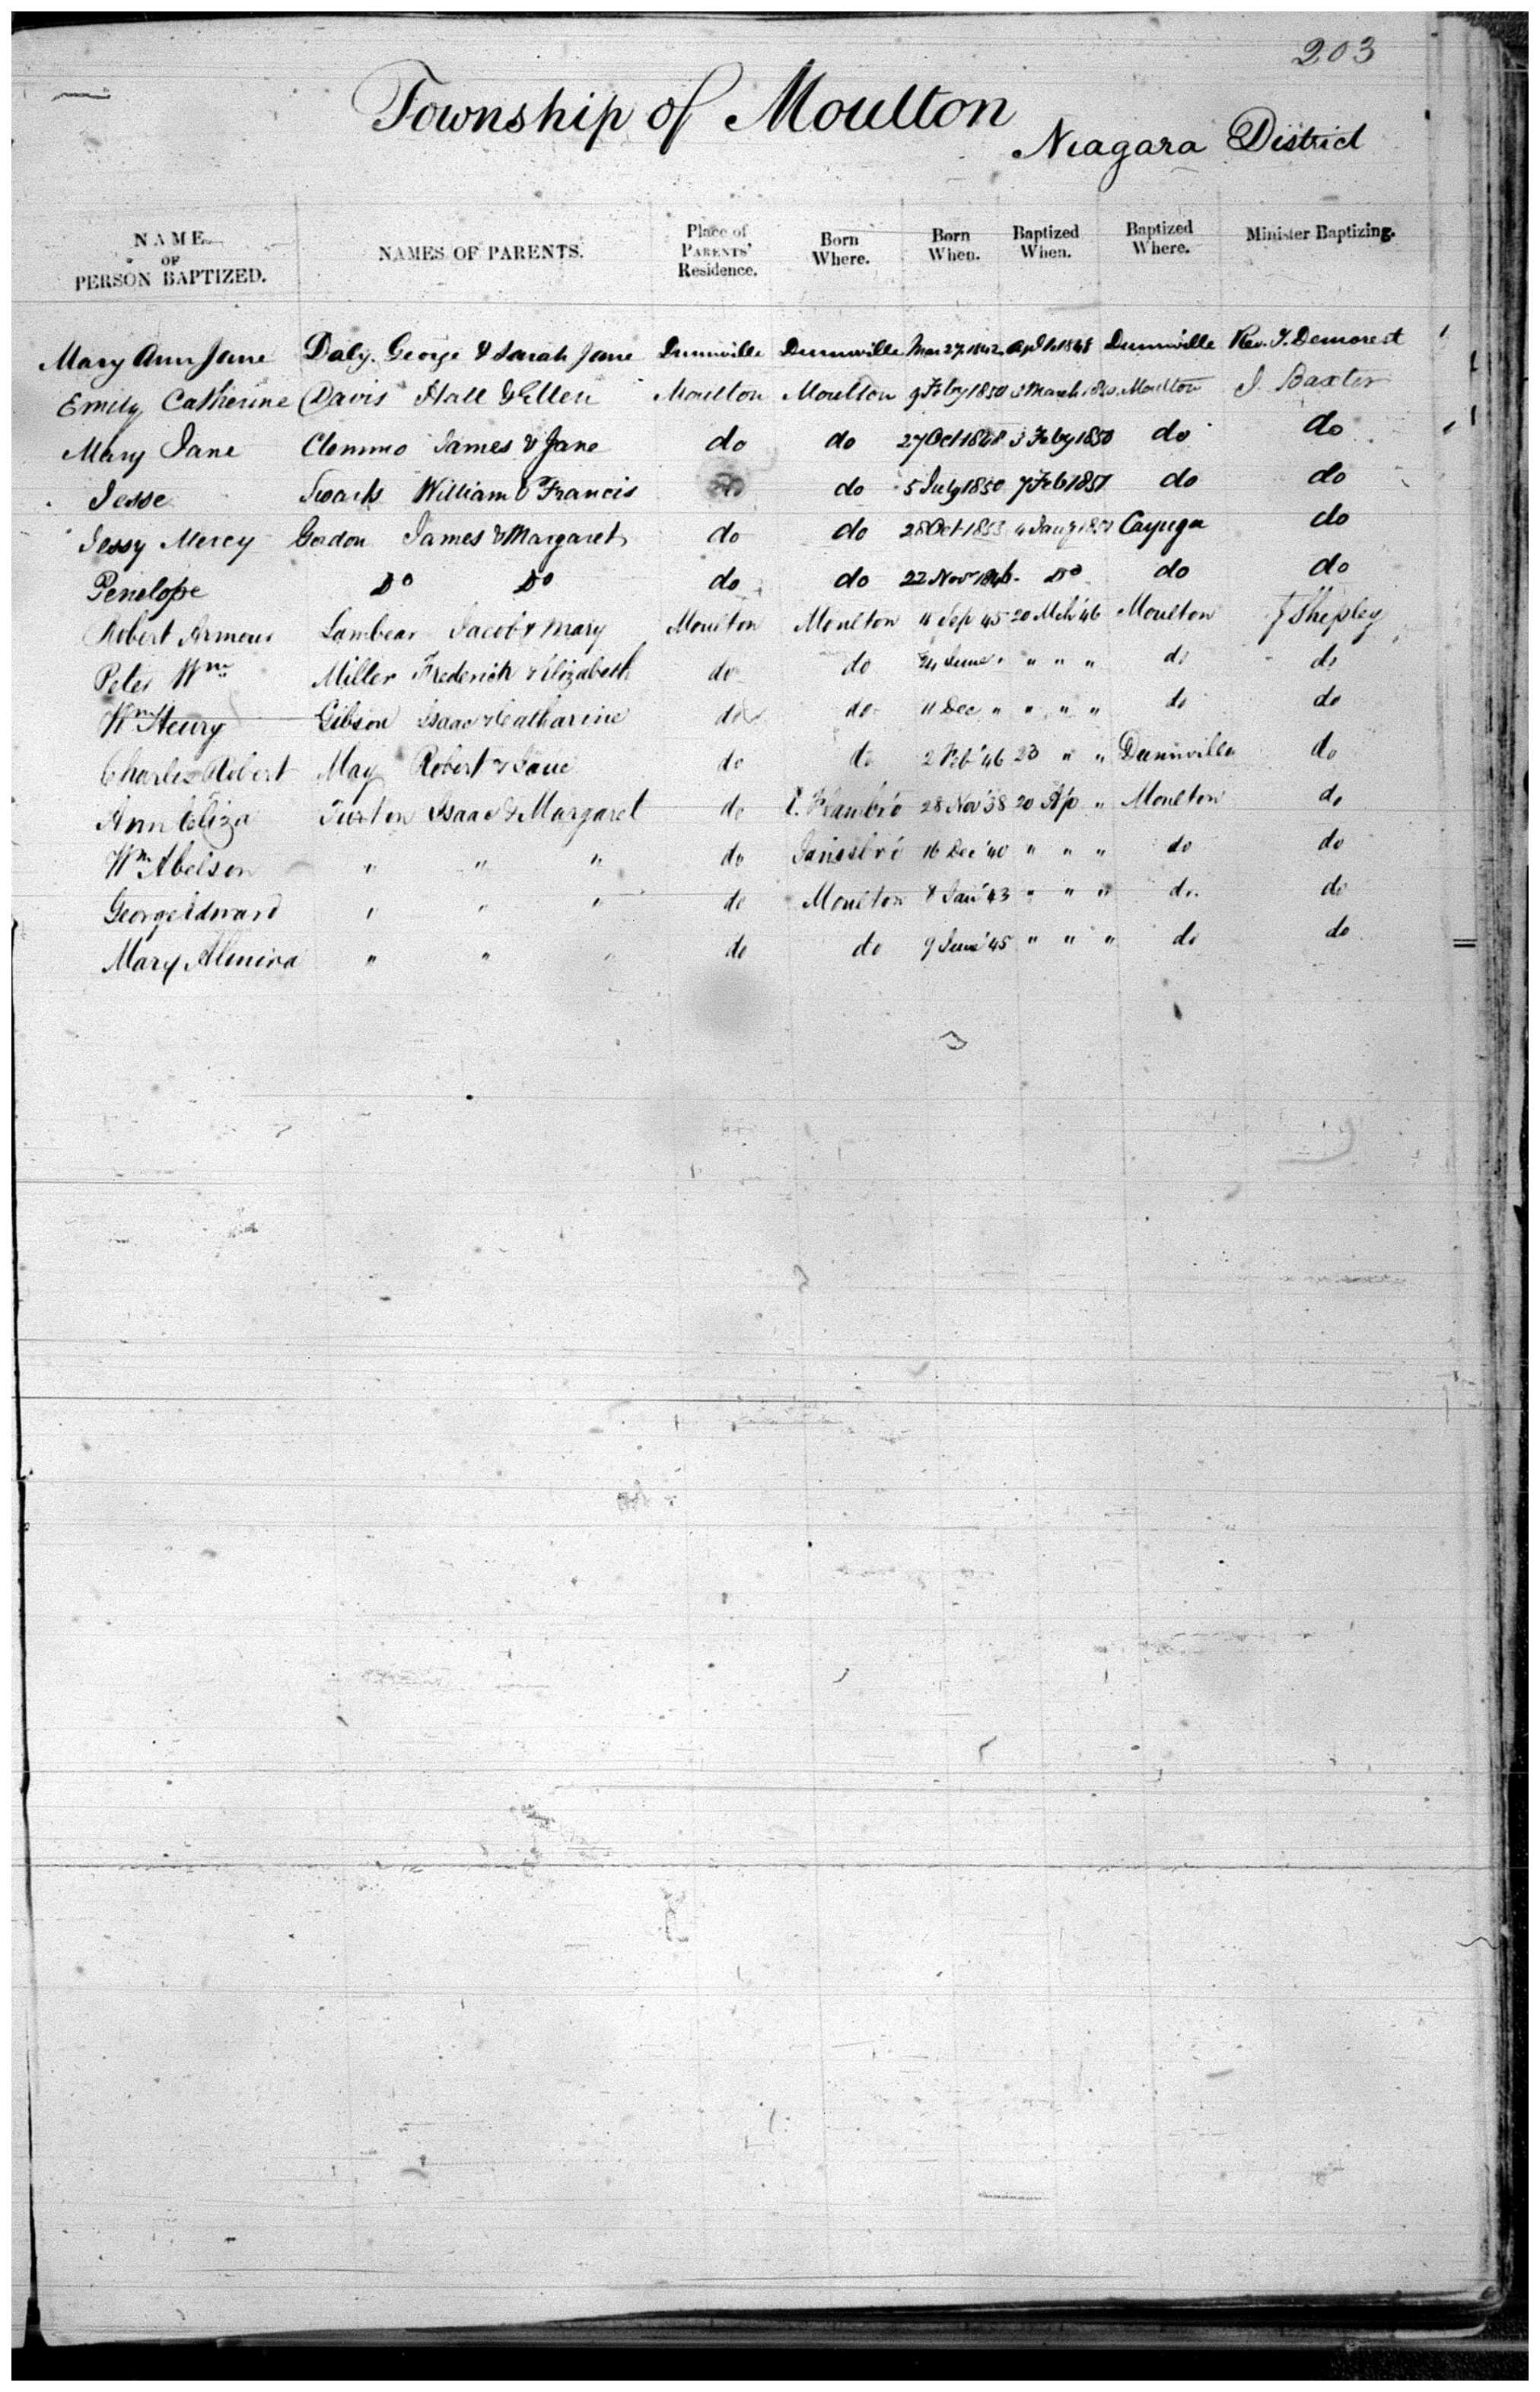 203
Township of Moulton
Niagara District
NAME OF PERSON BAPTIZED. NAMES OF PARENTS. Place of PARENTS' Residence. Born Where. Born When. Baptized When. Baptized Where. Minister Baptizing.
Mary Ann Jane Daly. George & Sarah Jane Dunnville Dunnville Mar 27. 1842 1848 Dunnville Rev. J. Demorest
Emily Catherine Davis Hall & Ellen Moulton Moulton 9 Feby 1850 3 March 1850 Moulton J. Baxter
Mary Jane Clemmo James & Jane do do 27 Oct 1848 3 Feby 1850 do do
Jesse William & Francis do do 5 July 1850 7 Feb 1851 do do
Jessy Mercy Gordon James & Margaret do do 28 Oct 4 Cayuga do
Penelope Do Do do do 22 Nov 1846 Do do do
Robert Armour Lambear Jacob & Mary Moulton Moulton 11 Sep 45 20 Mch 46 Moulton J Shepley
Peter Wm Miller Frederick & Elizabeth do do 24 June " " " " do do
Wm Henry Gibson Isaac & Catharine do do 11 Dec " " " " do do
Charles Robert May Robert & Jane do do 2 Feb '46 23 " " Dunnville do
Ann Eliza Turton Isaac & Margaret do E. Flambro 28 Nov '38 20 Ap " Moulton do
Wm Abelson " " " do 16 Dec '40 " " " do do
George Edward " " " do Moulton 8 Jan '43 " " " do. do
Mary Almira " " " do do 9 June '45 " " " do do